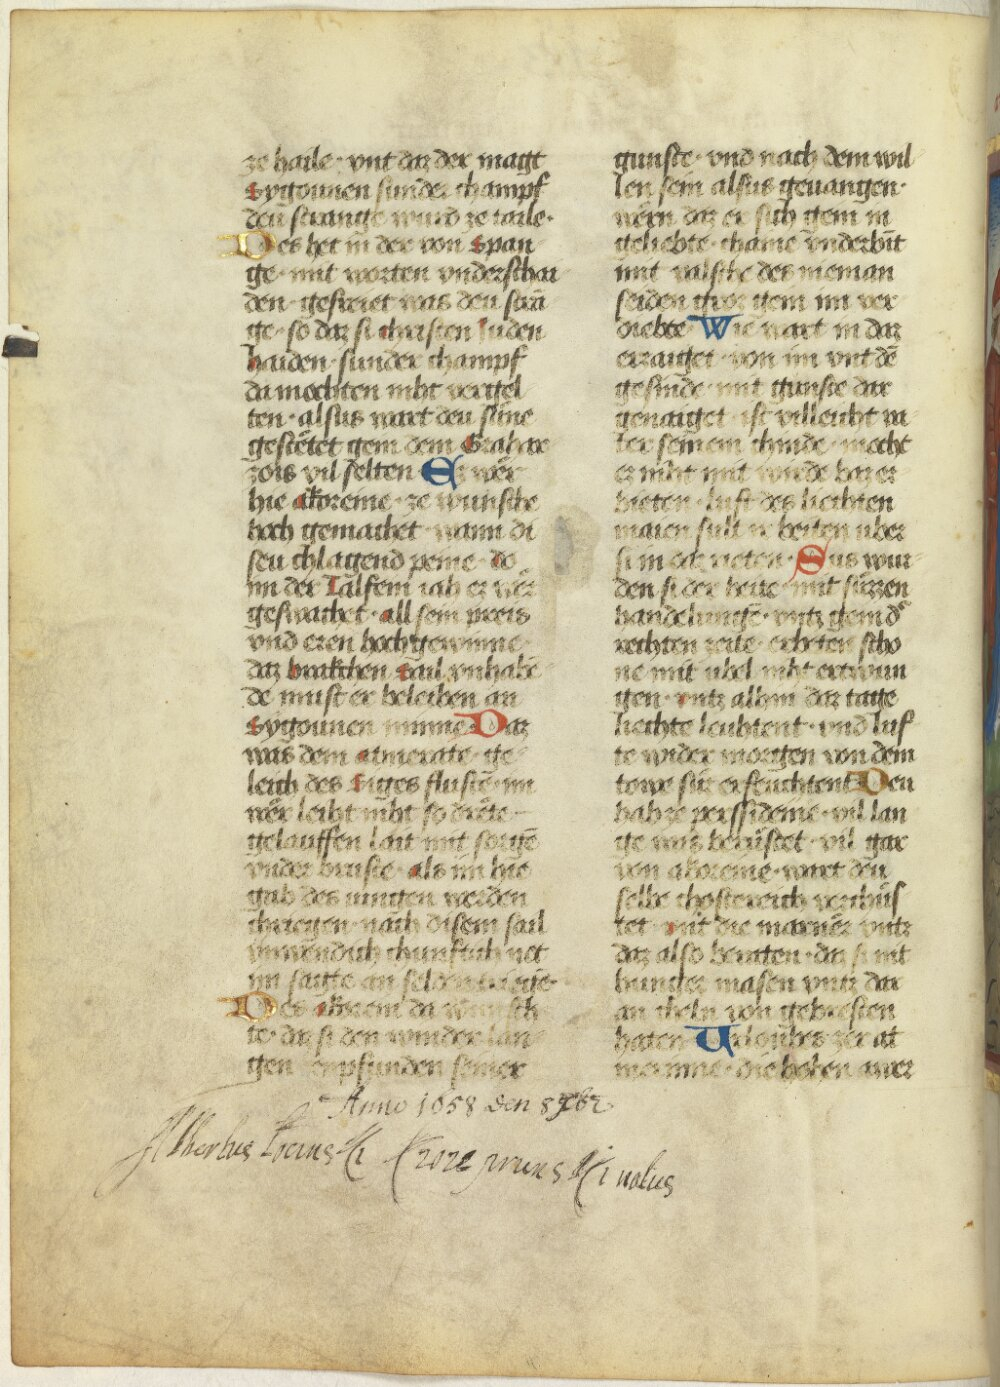 ze haile · vnt daz der magt
Sygounen sunder champf
deu strange wurd ze taile ·
Des het in der von Span
ge · mit worten vnderschai
den · gefreiet was deu stra
ge · so daz si christen Juden
haiden · sunder champf
da mochten niht vergel
ten · alsus wart deu sune
gestetet gein dem Grahar
zois vil selten Ez wer
hie akoreine · ze wunsche
hoch gemachet · wann di
seu chlagend peine · do
im der Talfein iah er wer
geswachet · all sein preis
vnd eren hoch gewinne ·
daz brakchen sail vnhabe
de must er beleiben an
Sygounen minne Daz
was dem atmerate · ge
leich des Siges flustē · im
wer leiht niht so drete
gelauffen lait mit sorgē
vnder bruste · als im hie
gab des iungen werden
chriegen · nach disem sail
vnwendich chunftich net
im sagte an selden triegē ·
Des akorein da wunsch
te · daz si den wunder lan
gen enpfunden seiner
gunste · vnd nach dem wil
len sein alsus geuangen ·
wern daz er sich gein in
geliebte · chaine vnderbint
imt valsche des nieman
seiden groz gein im ver
diebte · Wie wart in daz
erzaiget · von im vnt dē
gesinde · mit gunste dar
genaiget · ist villeuht va
ter seinem chinde · mocht
ez niht mit wirde baz er
bieten · luft des liechten
maien sult ir beiten uber
si in daz rieten · Sus wur
den si der heite · mit suzzen
handelungē · vntz gein d
rechten zeite · erbeten scho
ne mit ubel niht ertwun
gen · vntz alhin daz tage
liechte leuhtent · vnd luf
te wider morgen von dem
towe suz erfeuchtent Deu
hab ze perssideine · vil lan
ge was berustet · vil gar
von akoreine · wart deu
selbe chostereich verchus
tet · mit die marner vntz
daz also berieten · daz si mit
hundez masen vntz dar
an theln von gebresten
haten Urloubes zer at
merinne · die hohen aver
Anno 1658 den 8 Xbr
Albertus